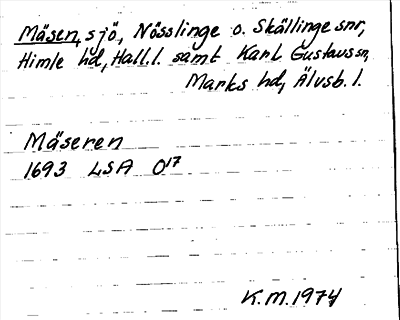 Mäsen, sjö, Nösslinge o. Skällinge snr,
Himle hd, Hall.l. samt Karl Gustavs sn,
Marks hd, Älvsb. l.
Mäseren
1693 LSA O17
K.M. 1974